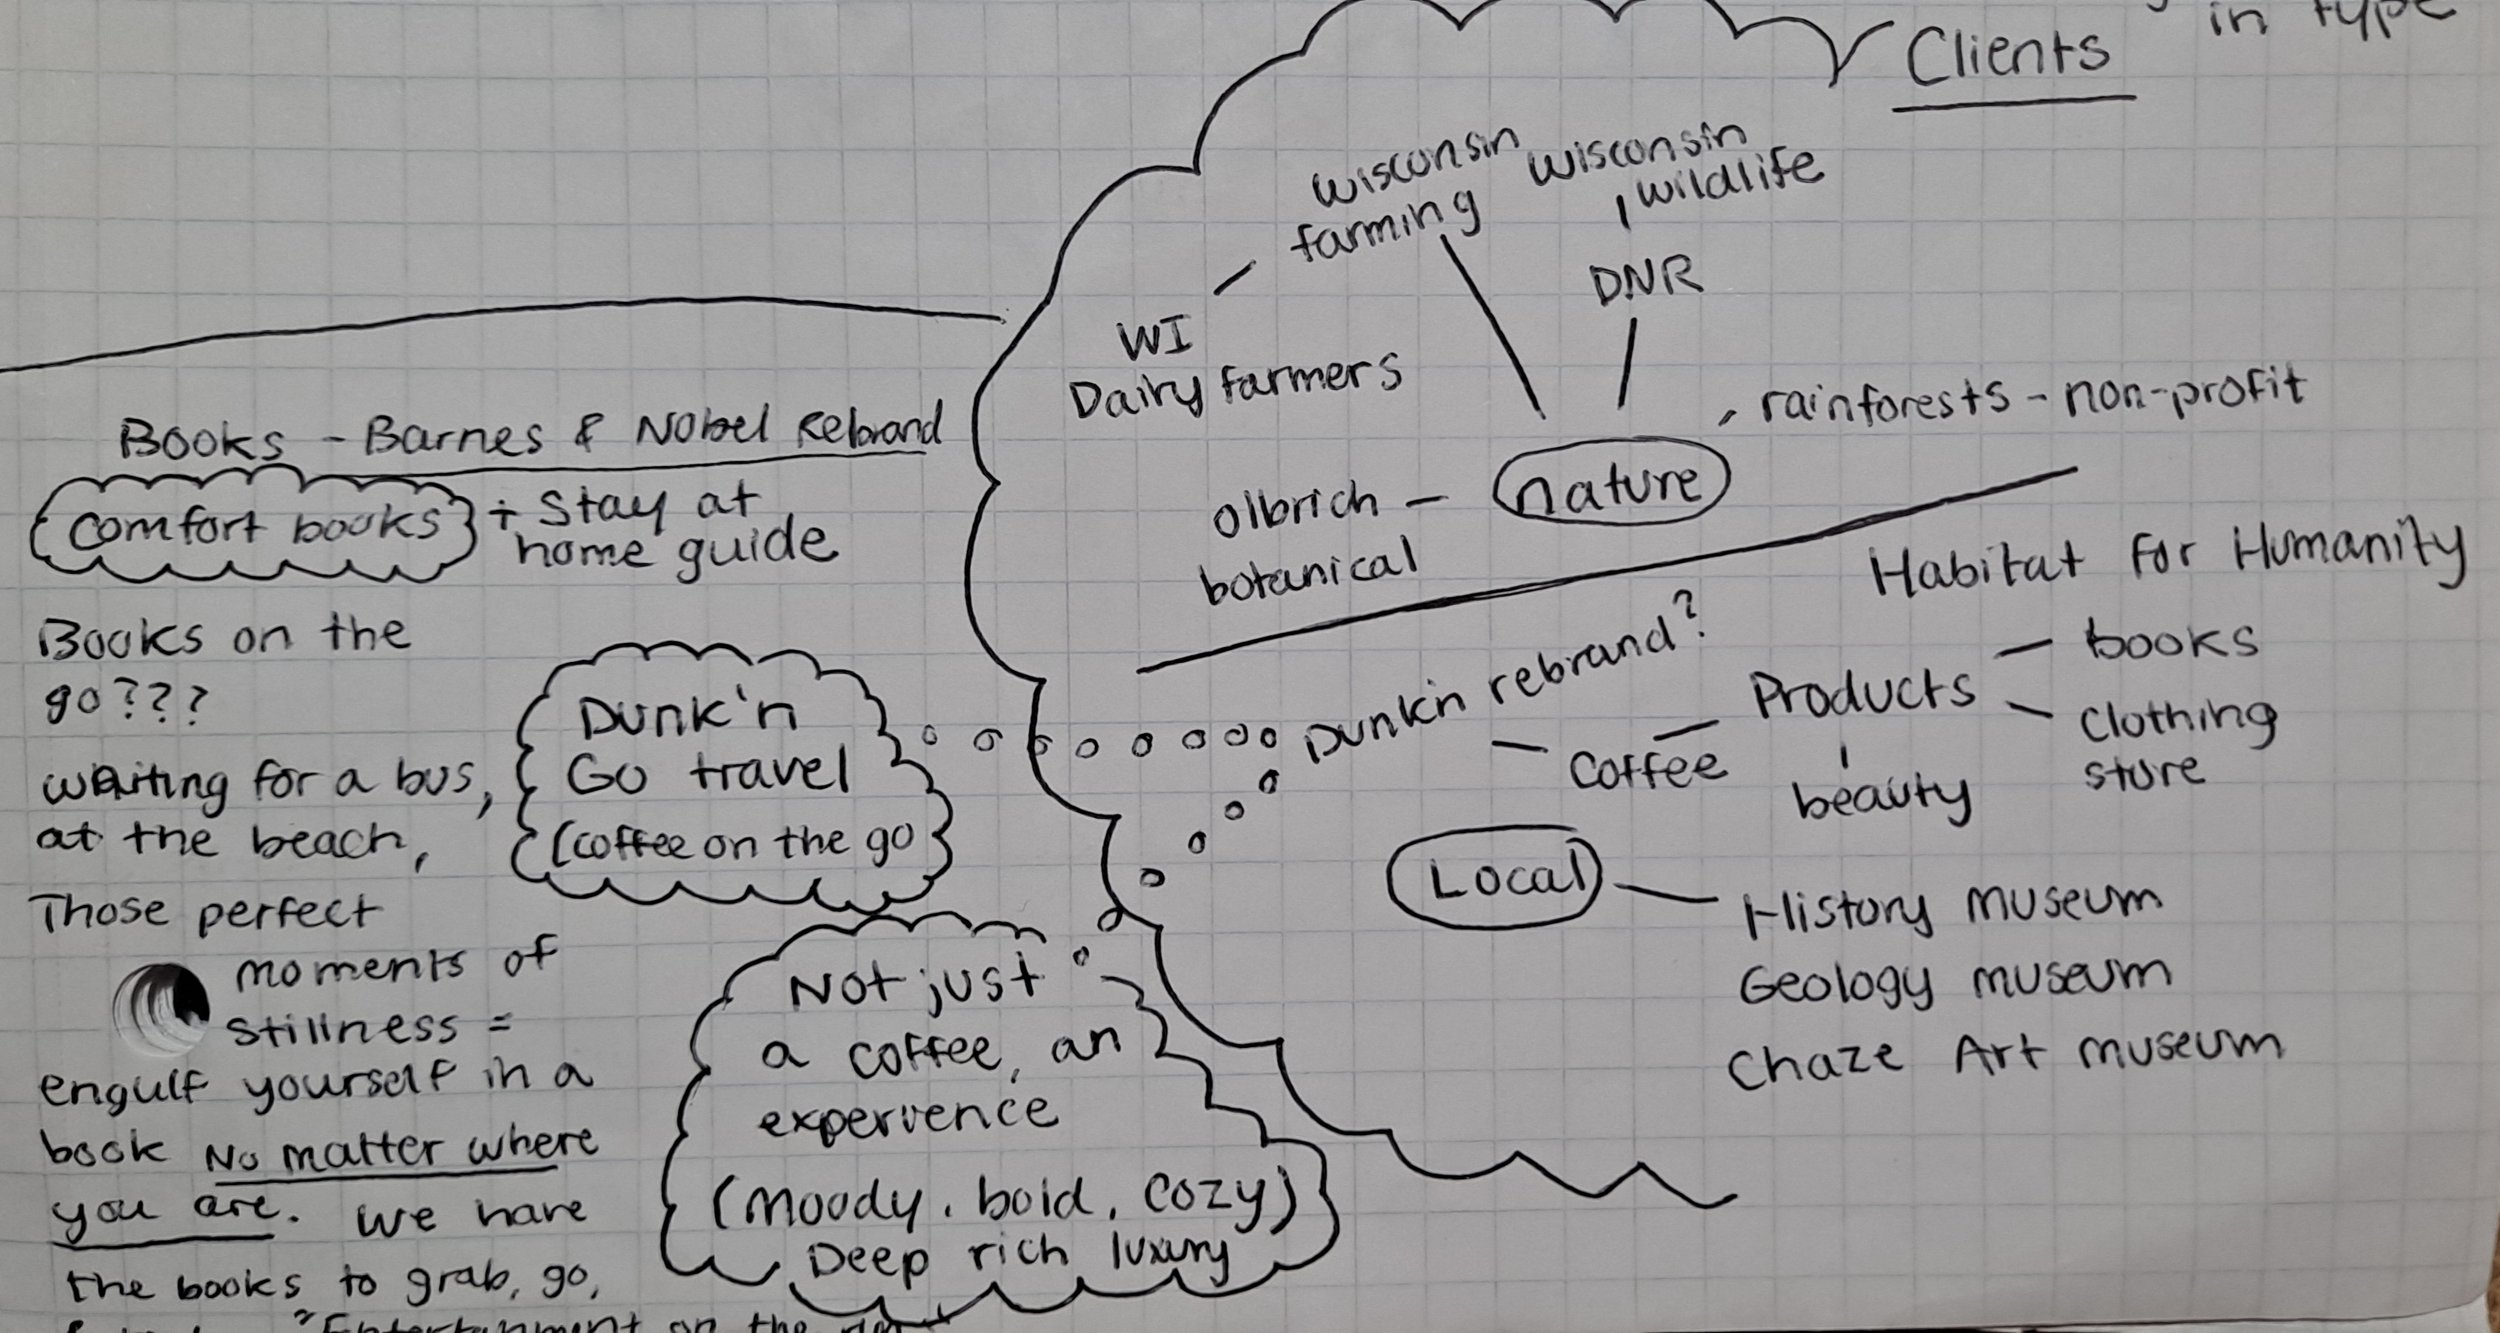 in type
Clients
wisconsin
farming
wisconsin
wildlife
DNR
WI
Dairy farmers
rainforests - non-profit
nature
olbrich -
botanical
Habitat for Humanity
Dunkin rebrand?
Coffee
Products
books
clothing
store
beauty
Local
History museum
Geology museum
Chaze Art museum
Books - Barnes & Nobel Rebrand
comfort books
+ Stay at
home guide
Books on the
go???
waiting for a bus,
at the beach,
Those perfect
moments of
stillness =
engulf yourself in a
book No matter where
you are. We have
the books to grab, go,
"Entertainment on the
Dunk'n
Go travel
(coffee on the go
Not just
a coffee, an
experience
(moody, bold, cozy)
Deep rich luxury